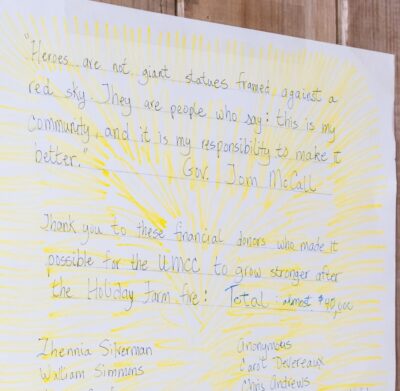 "Heroes are not giant statues framed against a
red sky. They are people who say: this is my
community, and it is my responsibility to make it
better." Gov. Tom McCall
Thank you to these financial donors who made it
possible for the UMCC to grow stronger after
the Holiday Farm fire: Total: almost $40,000
Zhennia Silverman
William Simmons
Anonymous
Carol Devereaux
Chris Andrews